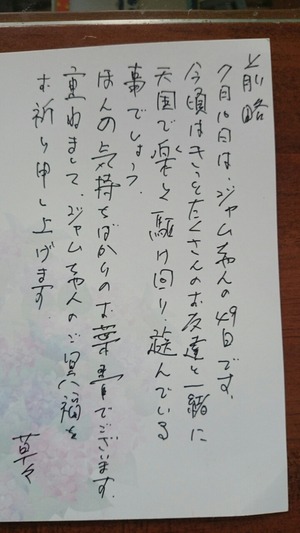 前略
7月10日は、ジャムちゃんの49日です。
今頃はきっとたくさんのお友達と一緒に
天国で楽しく駆け回り、遊んでいる
事でしょう。
ほんの気持ちばかりのお菓子でございます。
重ねまして、ジャムちゃんのご冥福を
お祈り申し上げます。
草々